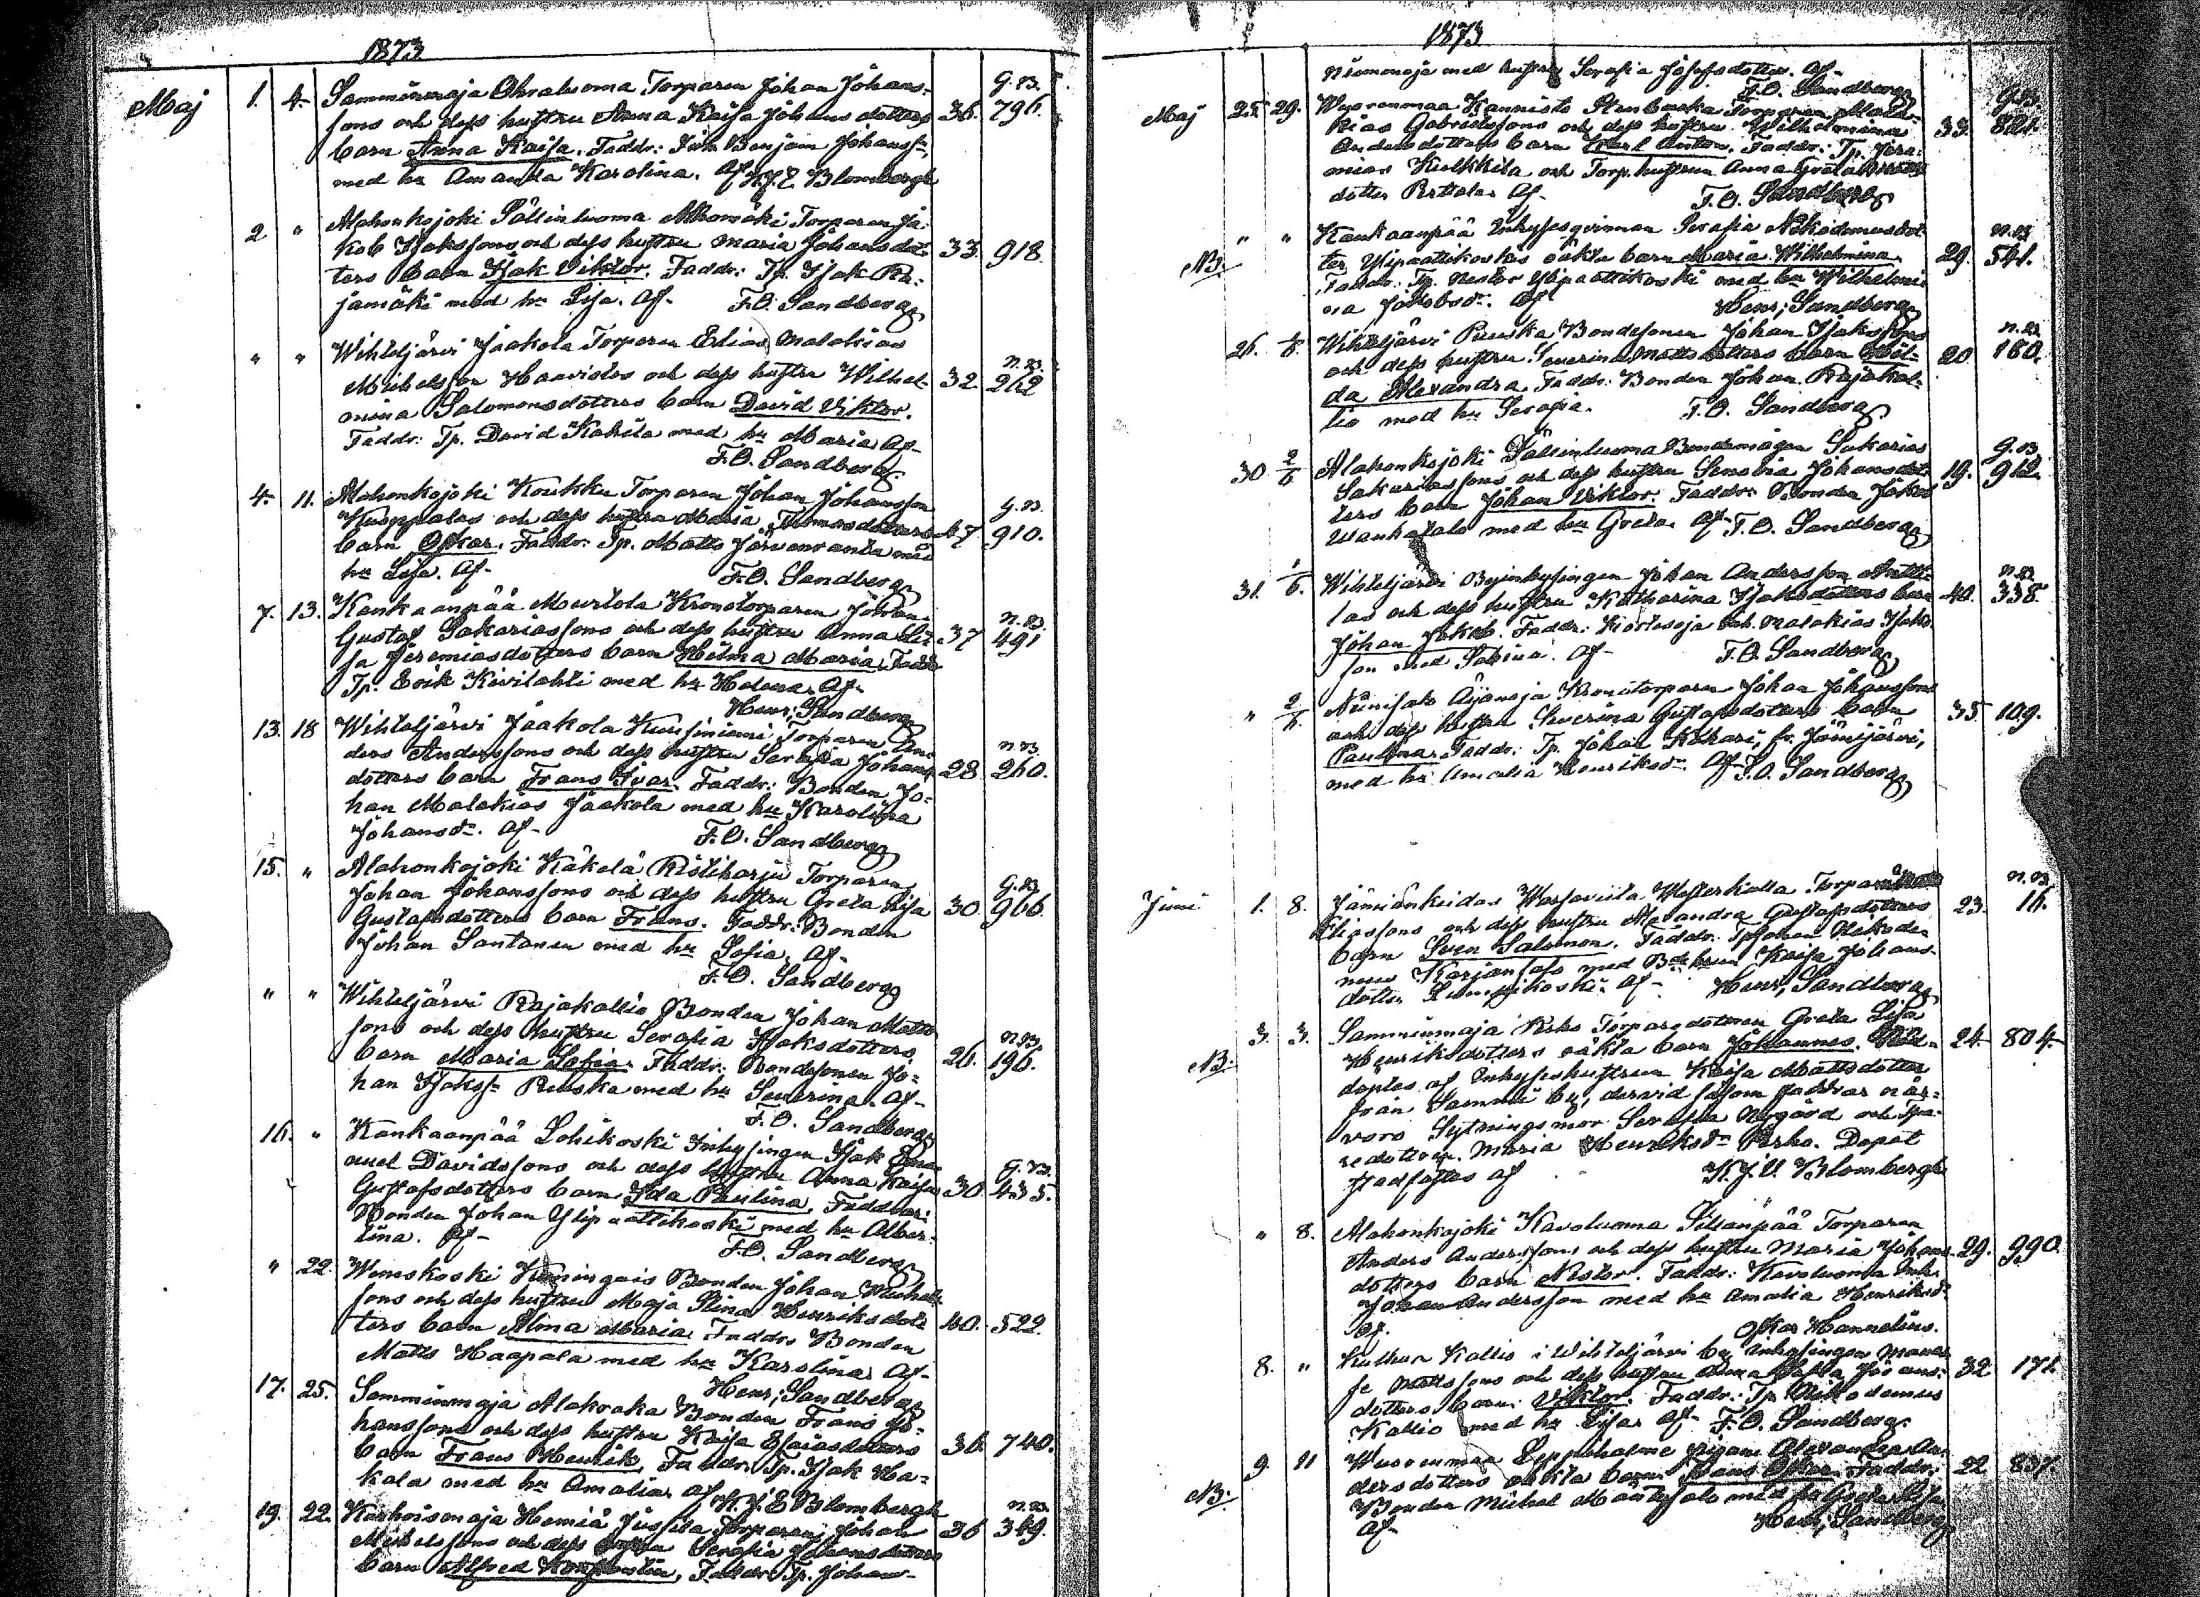 1873
G.B.
Maj 1. 4. Samminmaja Ohraluoma Torparen Johan Johans-
sons och dess hustru Anna Kaisa Johansdotters 36. 796.
barn Anna Kaisa. Faddr: Benjam Johanss:
med hu Amanda Karolina. Af K.J.E. Blombergh
2 " Alahonkajoki Sällinluoma Torparen Ja-
kob Isakssons och dess hustru Maria Johansdot- 33. 918.
ters barn Isak Viktor. Faddr: Tp. Isak Ra-
jamäki med hu Lisa. Af- F.O. Sandberg
" " Wihteljärvi Jaakola Torparen Elias Malakias n.B.
Michelsson Haavistos och dess hustru Wilhel- 32. 262
mina Salomonsdotters barn David Viktor.
Faddr: Tp. David Kohila med hu Maria Af-
F.O. Sandberg
4. 11. Alahonkajoki Koukku Torparen Johan Johansson G.B.
Kuoppalas och dess hustru Maria 910.
barn Oskar. Faddr: Tp. Matts Järvenranta med
hu Lisa. Af- F.O. Sandberg
7. 13. Kankaanpää Mourtola Kronotorparen Johan n.B.
Gustaf Sakariassons och dess hustru Anna Li- 37 491
sa Jeremiasdotters barn Hilma Maria. Faddr
Tp. Erik Kivilahti med hu Helena. Af-
Henr; Sandberg
13. 18 Wihteljärvi Jaakola Kuusiniemi Torparen An-
ders Anderssons och dess hustru Serafia Johans n.B.
dotters barn Frans Ivar. Faddr: Bonden Jo- 28 260.
han Malakias Jaakola med hu Karolina
Johansdr. Af- F.O. Sandberg
15. " Alahonkajoki Käkelä Ristiharju Torparen
Johan Johanssons och dess hustru Greta Lisa G.B.
Gustafsdotters barn Frans. Faddr: Bonden 30. 966.
Johan Santanen med hu Sofia. Af-
F.O. Sandberg
" " Wihteljärvi Rajakallio Bonden Johan Matts
sons och dess hustru Serafia Isaksdotters n.B.
barn Maria Sofia. Faddr: Bondesonen Jo- 26. 196.
han Isakss: Reuska med hu Severina. Af-
F.O. Sandberg
16. " Kankaanpää Lohikoski Inhysingen Isak Ema-
nuel Davidssons och dess hustru Anna Kaisa G.B.
Gustafsdotters barn Ida Paulina. Faddrar: 30. 435.
Bonden Johan Ylipaattikoski med hu Alber-
tina. Af- F.O. Sandberg
" 22. Weneskoski Kuningais Bonden Johan Michels
sons och dess hustru Maja Stina Henriksdot- 40. 522
ters barn Alma Maria. Faddr: Bonden
Matts Haapala med hu Karolina. Af-
Henr; Sandberg
17. 25. Samminmaja Alakraka Bonden Frans Jo-
hanssons och dess hustru Kaisa Esaiasdotters 36. 740.
barn Frans Henrik. Faddr: Tp. Isak Ha-
kala med hu Amalia. Af K.J.E Blombergh
19. 22. Karhoismaja Hemiä Jussila Torparen Johan n.B.
Michelssons och dess hustru Serafia Johansdotters 36 349.
barn Alfred Konstantin. Faddr: Tp. Johan
1873
Niemenoja med hustru Serafia Josefsdotter. Af-
F.O. Sandberg
Maj 25. 29. Wuorenmaa Kannisto Stenbacka Torparen Mala- G.B.
kias Gabrielssons och dess hustru Wilhelmina 33. 821.
Andersdotters barn Karl Anton. Faddr: Tp. Jere-
mias Kulkkila och Torp.hustrun Anna Greta
dotter Perttola. Af- F.O. Sandberg
" " Kankaanpää Inhysesqvinnan Serafia Nikodemusdot- n.B.
NB. ter Ylipaattikoskis oäkta barn Maria Wilhelmina 29. 541.
Faddr: Tp. Nestor Ylipaattikoski med hu Wilhelmi-
na Jakobsdr. Af Henr; Sandberg
26. 1/6. Wihteljärvi Reuska Bondesonen Johan Isakssons n.B.
och dess hustru Severina Mattsdotters barn Hil- 20 180.
da Alexandra. Faddr: Bonden Johan Rajakal-
lio med hu Serafia. F.O. Sandberg
30. 2/6 Alahonkajoki Sällinluoma Bondemågen Sakarias G.B.
Sakariassons och dess hustru Senobia Johansdot- 19. 912.
ters barn Johan Viktor. Faddr: Bonden Jakob
Wanhatalo med hu Greta. Af- F.O. Sandberg
31. 1/6. Wihteljärvi Byinhysingen Johan Andersson Antti- n.B.
las och dess hustru Katharina Isaksdotters barn 40. 338.
Johan Jakob. Faddr: Malakias Isaks
son med Sabina. Af- F.O. Sandberg
" 2/6 Niinisalo Äijanoja Kronotorparen Johan Johanssons
och dess hustru Severina Gustafsdotters barn 35 109.
Paulina. Faddr: Tp. Johan fr. Jämijärvi,
med hu Amalia Henriksdr. Af- F.O. Sandberg
Juni 1. 8. Jämiänkeidas Westerkulla Torparen n.B.
Eliassons och dess hustru Alexandra Gustafsdotters 23. 16.
barn Sven Salomon. Faddr: Nikode-
mus Karjansalo med Kaisa Johans-
dotter Lumpikoski. Af- Henr; Sandberg
3. 3. Samminmaja Torparedottren Greta Lisa
NB. Henriksdotters oäkta barn Johannes. Nöd- 24. 804.
döptes af Inhyseshustrun Kaisa Mattsdotter
från Sammi by, dervid såsom faddrar när-
voro Sytningsmor Serafia Nygård och Tpa-
redottren. Maria Henriksdr. Dopet
stadfästes af K.J.E. Blombergh
" 8. Alahonkajoki Kavoluoma Sillanpää Torparen
Anders Anderssons och dess hustru Maria Johans- 29. 990.
dotters barn Nestor. Faddr: Kavoluoma Inh.
Johan Andersson med hu Amalia Henriksdr.
Af. Oskar Hannelius.
8. " Kallio i Wihteljärvi by Inhysingen
Mattssons och dess hustru Johans- 32 171
dotters barn Viktor. Faddr: Tp. Nikodemus
Kallio med hu Lisa. Af- F.O. Sandberg.
9. 11 Wuorenmaa pigan Alexandra An-
NB. dersdotters oäkta barn Frans Oskar. Faddr: 22 837.
Bonden Michel Mäntysalo med hu Greta Lisa
Af- Henr; Sandberg